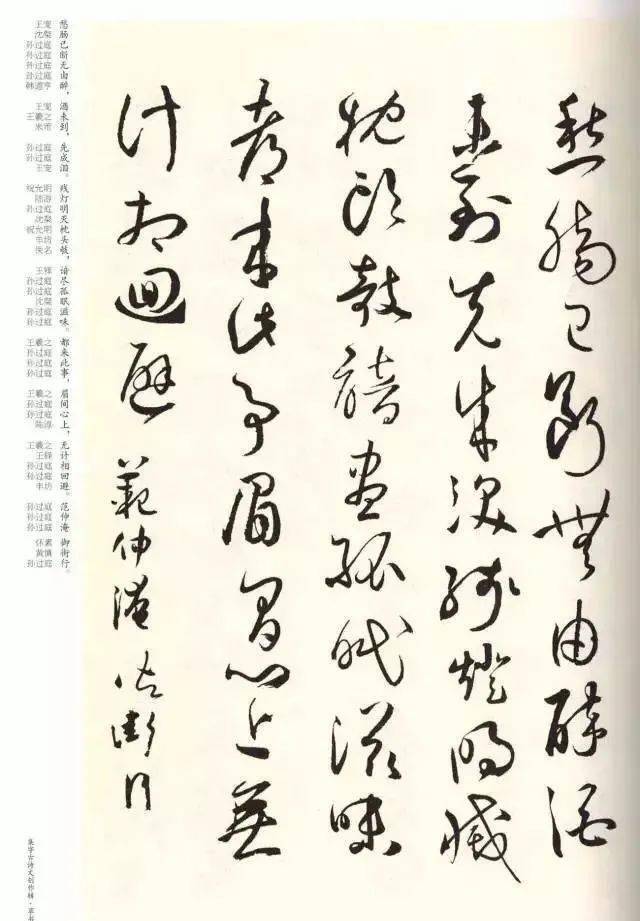 愁腸已斷無由醉酒
未到先成淚殘燈明滅
枕頭敧諳盡孤眠滋味
都來此事眉間心上無
計相迴避 範仲淹御街行
王宠 愁
沈粲 肠
孙过庭 已
孙过庭 断
孙过庭 无
孙过庭 由
韩道亨 醉，
王宠 酒
王羲之 未
米芾 到，
孙过庭 先
孙过庭 成
王宠 泪。
祝允明 残
陆游 灯
孙过庭 明
沈粲 灭
祝允明 枕
丰坊 头
佚名 敧，
王铎 谙
孙过庭 尽
孙过庭 孤
沈粲 眠
孙过庭 滋
孙过庭 味。
王羲之 都
孙过庭 来
孙过庭 此
孙过庭 事，
王羲之 眉
孙过庭 间
孙过庭 心
陈淳 上，
王羲之 无
王铎 计
孙过庭 相
孙过庭 回
丰坊 避。
孙过庭 范
孙过庭 仲
孙过庭 淹
怀素 御
黄慎 街
孙过庭 行。
集字古诗文创作辑·草书